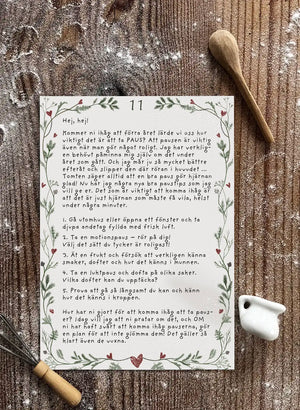 11
Hej, hej!
Kommer ni ihåg att förra året lärde vi oss hur
viktigt det är att ta PAUS? Att pausen är viktig
även när man gör något roligt. Jag har verklig-
en behövt påminna mig själv om det under
året som gått. Och jag mår ju så mycket bättre
efteråt och slipper den där rösen i huvudet ...
Tomten säger alltid att en bra paus gör hjärnan
glad! Nu har jag några nya bra paustips som jag
vill ge er. Det som är viktigt att komma ihåg är
att det är just hjärnan som måste få vila, helst
under några minuter.
1. Gå utomhus eller öppna ett fönster och ta
djupa andetag fyllda med frisk luft.
2. Ta en motionspaus – rör på dig!
Välj det sätt du tycker är roligast!
3. Ät en frukt och försök att verkligen känna
smaker, dofter och hur det känns i munnen.
4. Ta en luktpaus och dofta på olika saker.
Vilka dofter kan du upptäcka?
5. Prova att gå så långsamt du kan och känn
hur det känns i kroppen.
Hur har ni gjort för att komma ihåg att ta paus-
er? Idag vill jag att ni pratar om det, och OM
ni har haft svårt att komma ihåg pauserna, gör
en plan för att inte glömma dem! Det gäller så
klart även de vuxna.